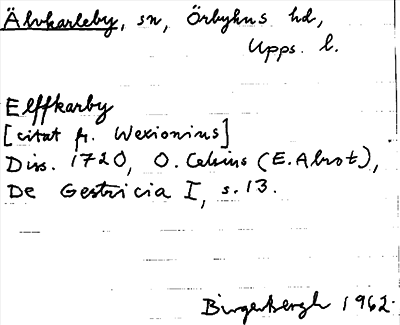 Älvkarleby, sn, Örbyhus hd,
Upps. l.
Elffkarby
[citat fr. Wexionius]
Diss. 1720, O. Celsius (E. Alrot),
De Gestricia I, s. 13.
Birgerbergh 1962.